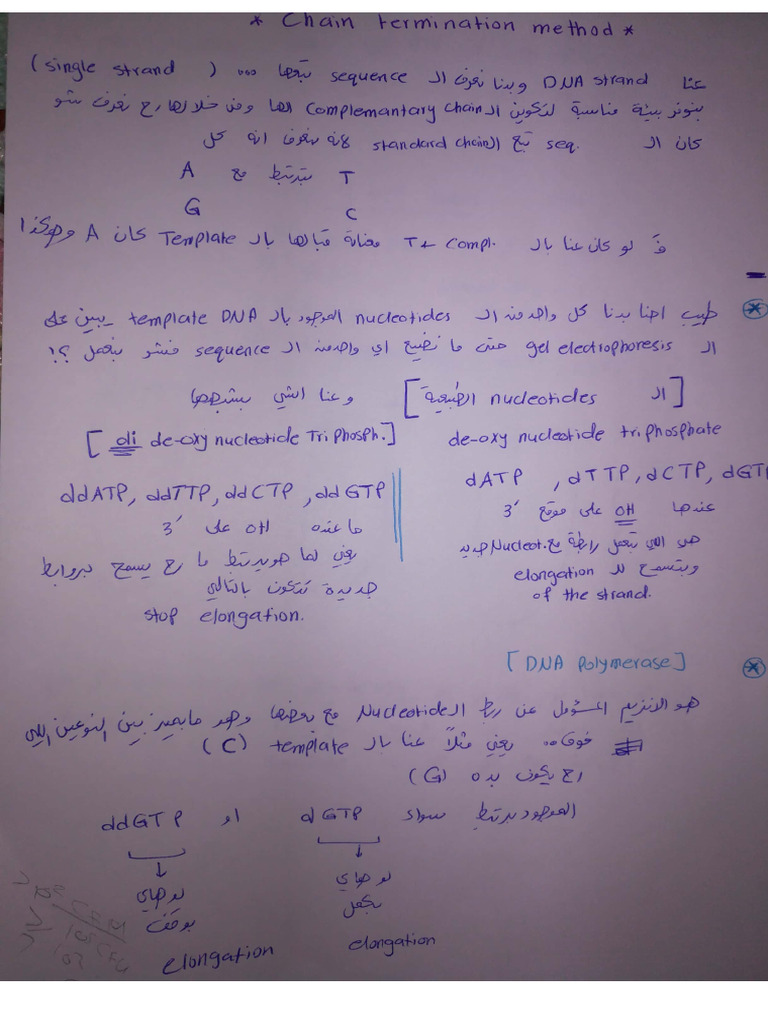 * Chain termination method *
عنا DNA strand وبدنا نعرف الـ sequence تبعها ... (single strand)
بنوفر بيئة مناسبة لتكوين الـ Complemantary chain الها ومن خلالها رح نعرف شو
كان الـ seq. تبع الـ standard chain لانه بنعرف انه كل
T بترتبط مع A
C G
فـ لو كان عنا بالـ Compl. T معناته قبالها بالـ Template كان A وهكذا
* طيب احنا بدنا كل واحد من الـ nucleotides الموجود بالـ template DNA يبين على
الـ gel electrophoresis حتى ما نضيع اي واحد من الـ sequence فشو بنعمل ؟!
[الـ nucleotides الطبيعية] وعنا اشي بشبهها
de-oxy nucleotide triphosphate
[di de-oxy nucleotide Triphosph.]
dATP , dTTP, dCTP, dGTP
ddATP, ddTTP, ddCTP, ddGTP
عندها OH على موقع 3'
هي اللي بتعمل رابطة مع Nucleot. جديد
وبتسمح للـ elongation
of the strand.
ما عنده OH على 3'
يعني لما هو يرتبط ما رح يسمح لروابط
جديدة تتكون بالتالي
stop elongation.
* [DNA Polymerase]
هو الانزيم المسؤول عن ربط الـ Nucleotide مع بعضها وهو ما بميز بين النوعين اللي
فوق .. يعني مثلاً عنا بالـ template (C)
رح يكون بده (G)
الموجود يرتبط سواء dGTP او ddGTP
لو هاي
بكمل
elongation
لو هاي
بوقف
elongation